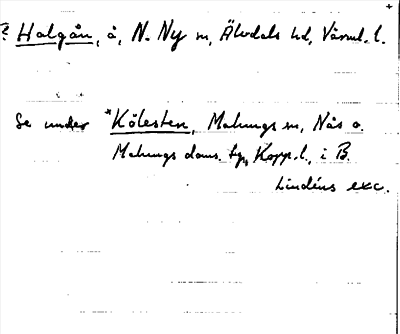 ? Halgån, å, N. Ny sn, Älvdals hd, Värml. l.
Se under *Kölesten, Malungs sn, Nås o.
Malungs doms. tg, Kopp. l., i B.
Lindéns exc.